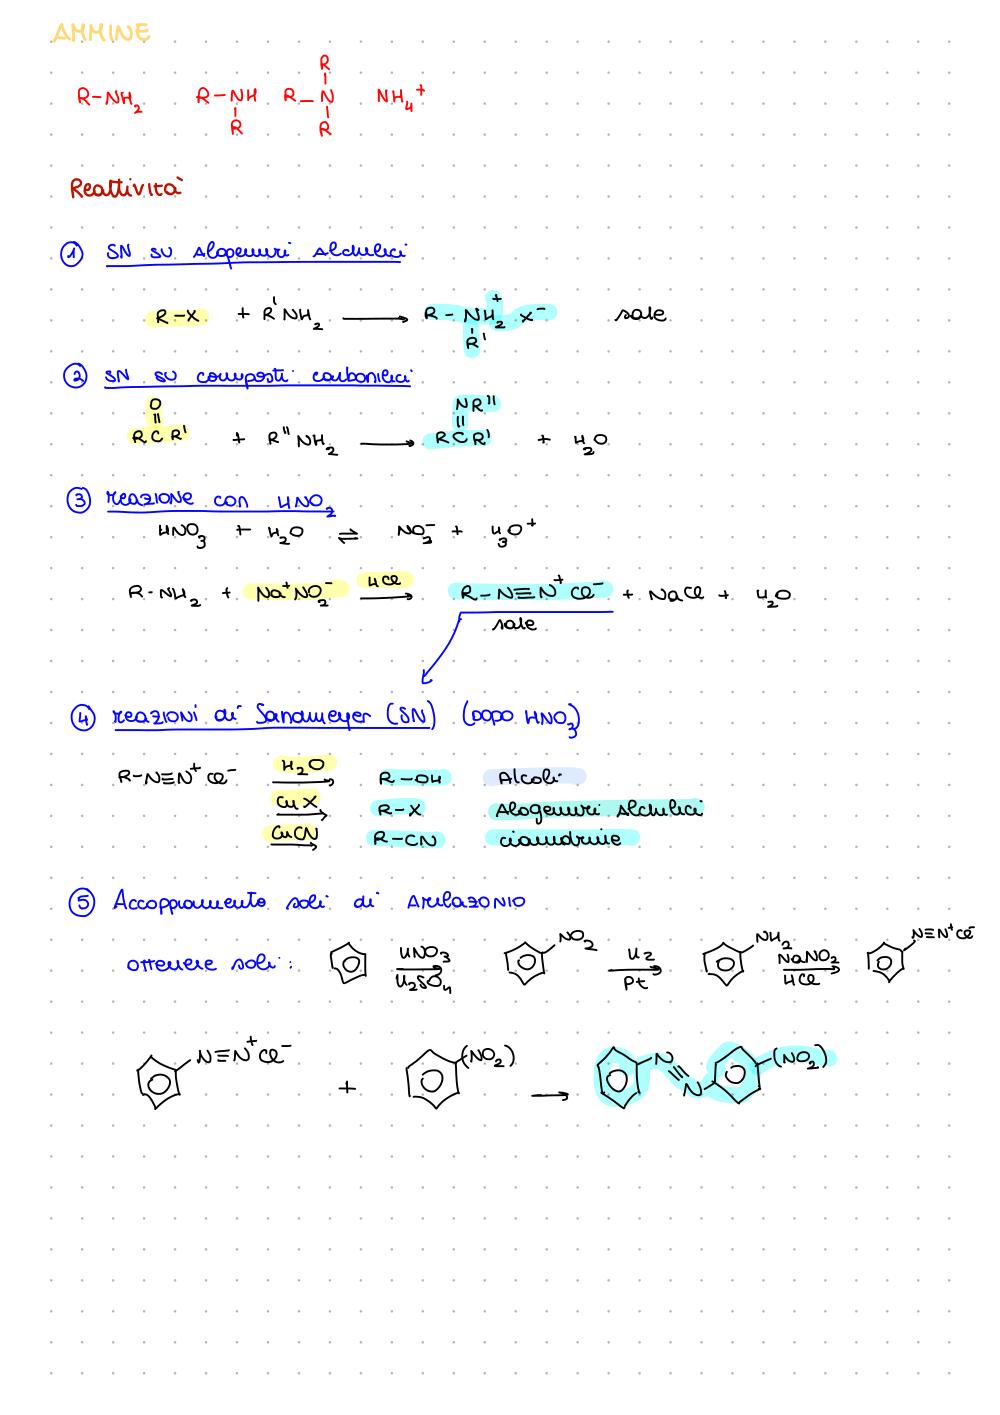 AMMINE
R-NH₂ R-NH R-N NH₄⁺
R R R
Reattività
① SN su Alogenuri Alchilici
R-X + R'NH₂ ⟶ R-NH₂⁺ X⁻ sale
R'
② SN su composti carbonilici
O NR''
RCR' + R''NH₂ ⟶ RCR' + H₂O
③ reazione con HNO₂
HNO₃ + H₂O ⇌ NO₃⁻ + H₃O⁺
R-NH₂ + Na⁺NO₂⁻ HCl ⟶ R-N≡N⁺Cl⁻ + NaCl + H₂O
sale
④ reazioni di Sandmeyer (SN) (DOPO HNO₃)
R-N≡N⁺Cl⁻ H₂O ⟶ R-OH Alcoli
CuX ⟶ R-X Alogenuri Alchilici
CuCN ⟶ R-CN cianidrine
⑤ Accoppiamento sali di Arilazonio
ottenere sali: HNO₃ H₂SO₄ ⟶ NO₂ H₂ Pt ⟶ NH₂ NaNO₂ HCl ⟶ N≡N⁺Cl⁻
N≡N⁺Cl⁻ + (NO₂) ⟶ N=N (NO₂)